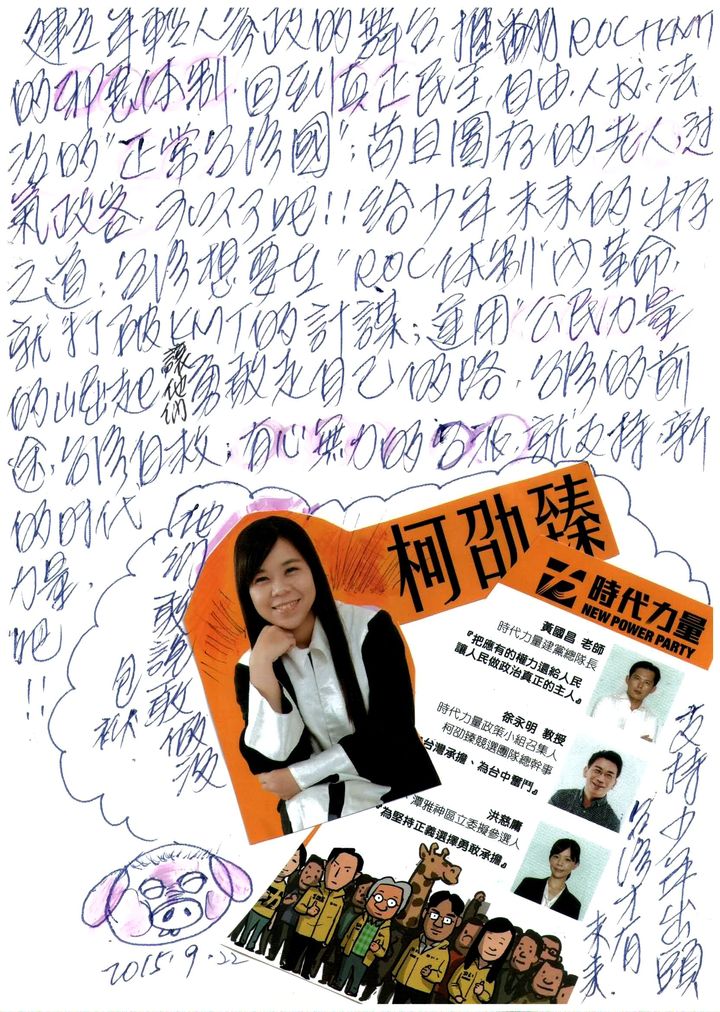 建立年輕人參政的舞台, 推翻 ROC+KMT
的邪惡体制, 回到真正民主, 自由, 人权, 法
治的"正常台湾國"; 苟且圖存的老人, 过
氣政客, 可以了吧!! 給少年未來的生存
之道; 台湾想要在"ROC体制"內革命,
就打破KMT的計謀; 運用"公民力量
的崛起, 讓他們勇敢走自己的路, 台湾的前
途, 台湾自救; 有心無力的台派, 就支持新
的時代
力量,
吧!!
他們敢說敢做沒
包袱
柯劭臻
時代力量
NEW POWER PARTY
黃國昌 老師
時代力量建黨總隊長
『把應有的權力還給人民
讓人民做政治真正的主人』
徐永明 教授
時代力量政策小組召集人
柯劭臻競選團隊總幹事
台灣承擔、為台中奮鬥』
洪慈庸
潭雅神區立委擬參選人
『為堅持正義選擇勇敢承擔』
支持少年出頭
台湾才有
未來
2015.9.22